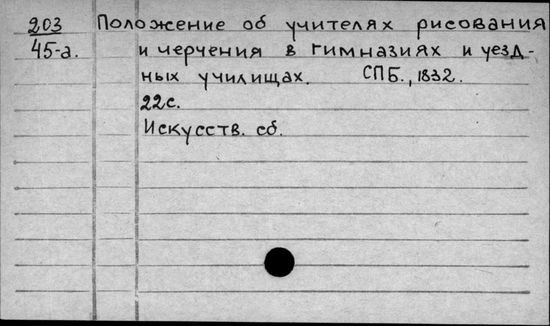 203 Положение об учителях рисования
45-а. и черчения в гимназиях и уезд-
ных училищах. СПБ., 1832.
22с.
Искусств. сб.